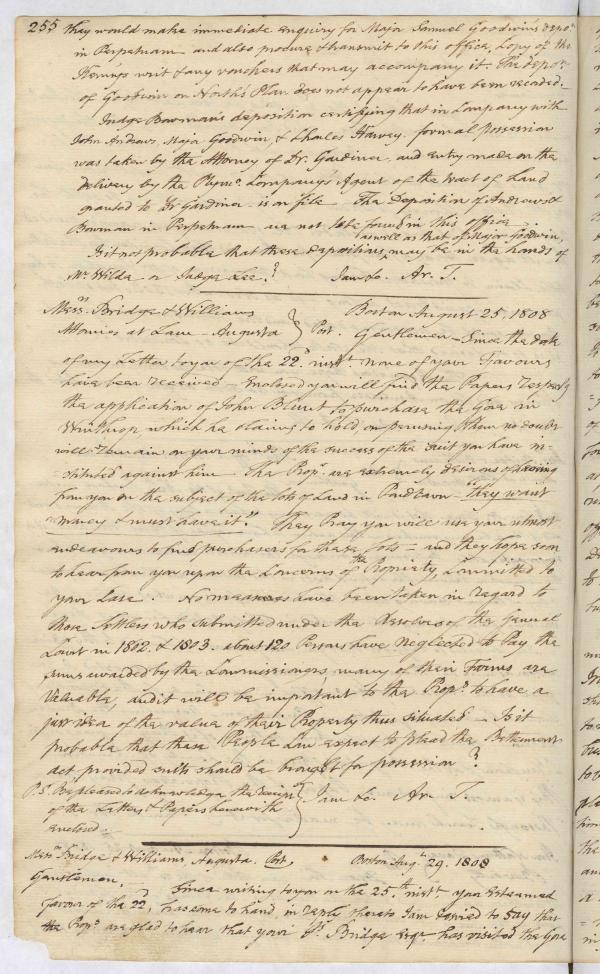 255 they would make immediate enquiry for Major Samuel Goodwin's Depo.n
in Perpetuam and also procure & transmit to this office, Copy of the
Hennys writ & any vouchers that may accompany it. The depo.n
of Goodwin on North's Plan does not appear to have been recorded.
Judge Bowman's deposition certifying that in Company with
John Andrews, Major Goodwin, & Charles Harvey formal possession
was taken by the Attorney of Dr. Gardiner, and entry made on the
delivery by the Plym.o Company's Agent of the tract of Land
granted to Dr Gardiner is on file. The Deposition of Andrews &
Bowman in Perpetuam are not to be found in this office.
as well as that of Major Goodwin,
Is it not probable that these depositions may be in the hands of
Mr. Wilde or Judge Lee? I am &c. Ar. T.
Mess.rs Bridge & Williams
Attornies at Law - Augusta } Post. Boston August 25. 1808
Gentlemen - Since the date
of my Letter to you of the 22.d inst.t none of your Favours
have been received - Enclosed you will find the Papers respect.g
the application of John Blunt to purchase the Gore in
Winthrop which he claims to hold, on perusing them no doubt
will remain on your minds of the success of the suit you have in-
stituted against him - The Prop.s are extremely desirous of hearing
from you on the subject of the lots of Land in Paultown - "they want
money & must have it". They Pray you will use your utmost
endeavours to find purchasers for these Lots - and they hope soon
to hear from you upon the Concerns of the Propriety, Committed to
your Care. No measures have been taken in regard to
those Settlers who submitted under the Resolves of the General
Court in 1802. & 1803. about 120 Persons have neglected to Pay the
sums awarded by the Commissioners, many of their Farms are
Valuable, and it will be important to the Prop.s to have a
just idea of the value of their Property thus situated - Is it
probable that these People can expect to plead the Betterment
act provided suits should be brought for possession?
P.S. Be pleased to acknowledge the receipt
of the Letters & Papers herewith
enclosed. } I am &c. Ar. T.
Mess.rs Bridge & Williams, Augusta. Post, Boston Aug.t 29. 1808
Gentlemen,
Since writing to you on the 25.th inst.t your Esteemed
favour of the 22.d has come to hand, in reply thereto I am desired to say that
the Prop.s are glad to hear that your Bridge Esq.r has visited the Gore